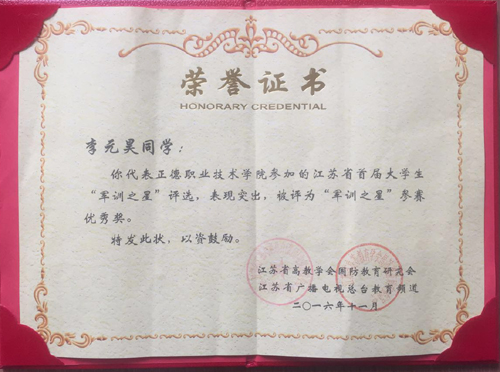 荣誉证书
HONORARY CREDENTIAL
李元昊同学:
你代表正德职业技术学院参加的江苏省首届大学生
“军训之星”评选,表现突出,被评为“军训之星”参赛
优秀奖。
特发此状,以资鼓励。
江苏省高教学会国防教育研究会
江苏省广播电视总台教育频道
二〇一六年十一月